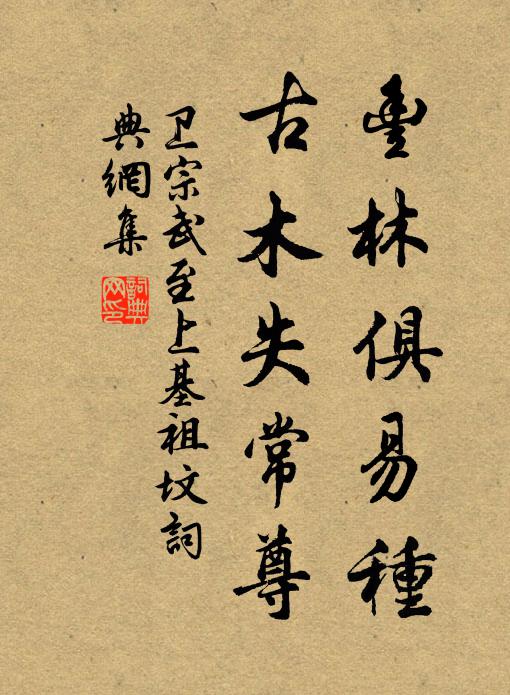 豊林俱易種
古木失常尊
卫宗武至上基祖坟詞
典網集
詞典
网印